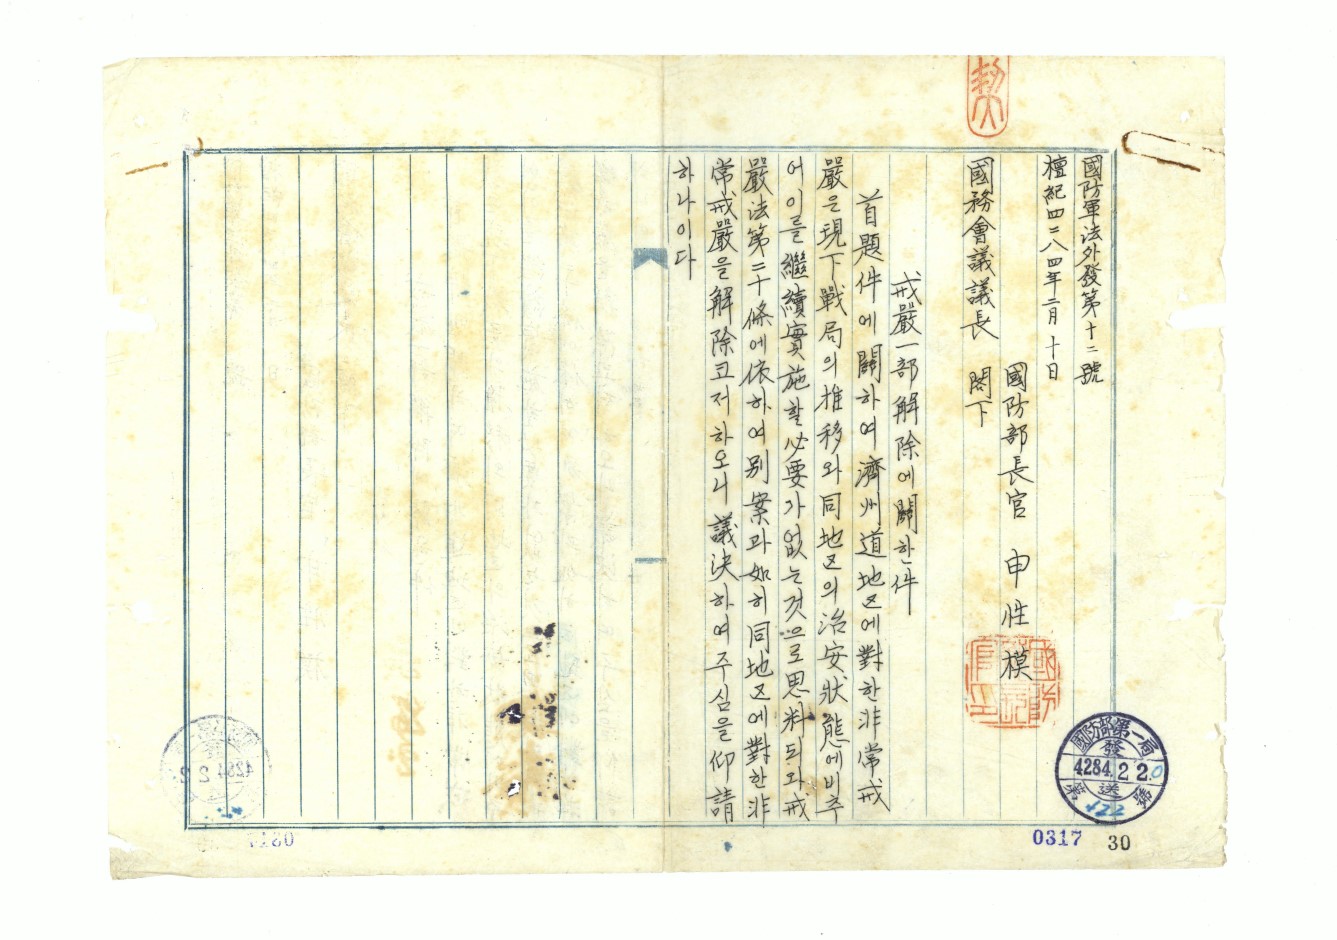 國防軍法外發第十二號
檀紀四二八四年二月 十日
國防部長官 申性模
國務會議議長 閣下
戒嚴一部解除에關한件
首題件에關하여濟州道地区에對한非常戒
嚴은現下戰局의推移와同地区의治安狀態에비추
어이를繼續實施할必要가없는것으로思料되와戒
嚴法第二十條에依하여別案과如히同地区에對한非
常戒嚴을解除코저하오니議決하여주심을仰請
하나이다
國防部第一局
發
4284. 2 20
送
第 122 號
0317 30